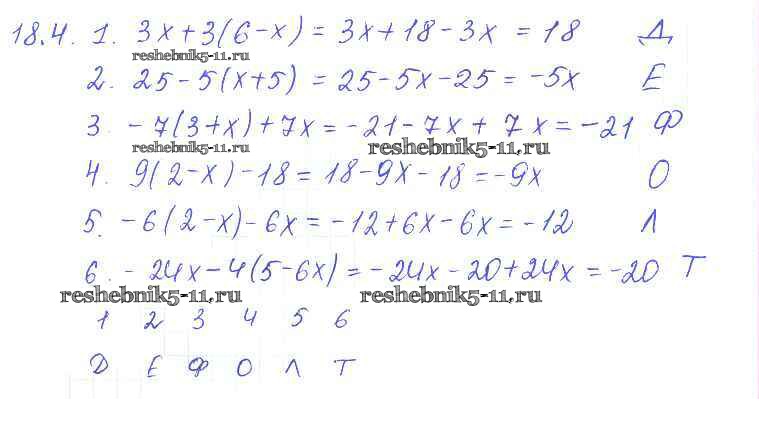 18.4. 1. 3x+3(6-x) = 3x+18-3x = 18 Д
reshebnik5-11.ru
2. 25-5(x+5) = 25-5x-25 = -5x Е
3. -7(3+x)+7x = -21-7x+7x = -21 Ф
reshebnik5-11.ru reshebnik5-11.ru
4. 9(2-x)-18 = 18-9x-18 = -9x О
5. -6(2-x)-6x = -12+6x-6x = -12 Л
6. -24x-4(5-6x) = -24x-20+24x = -20 Т
reshebnik5-11.ru reshebnik5-11.ru
1 2 3 4 5 6
Д Е Ф О Л Т